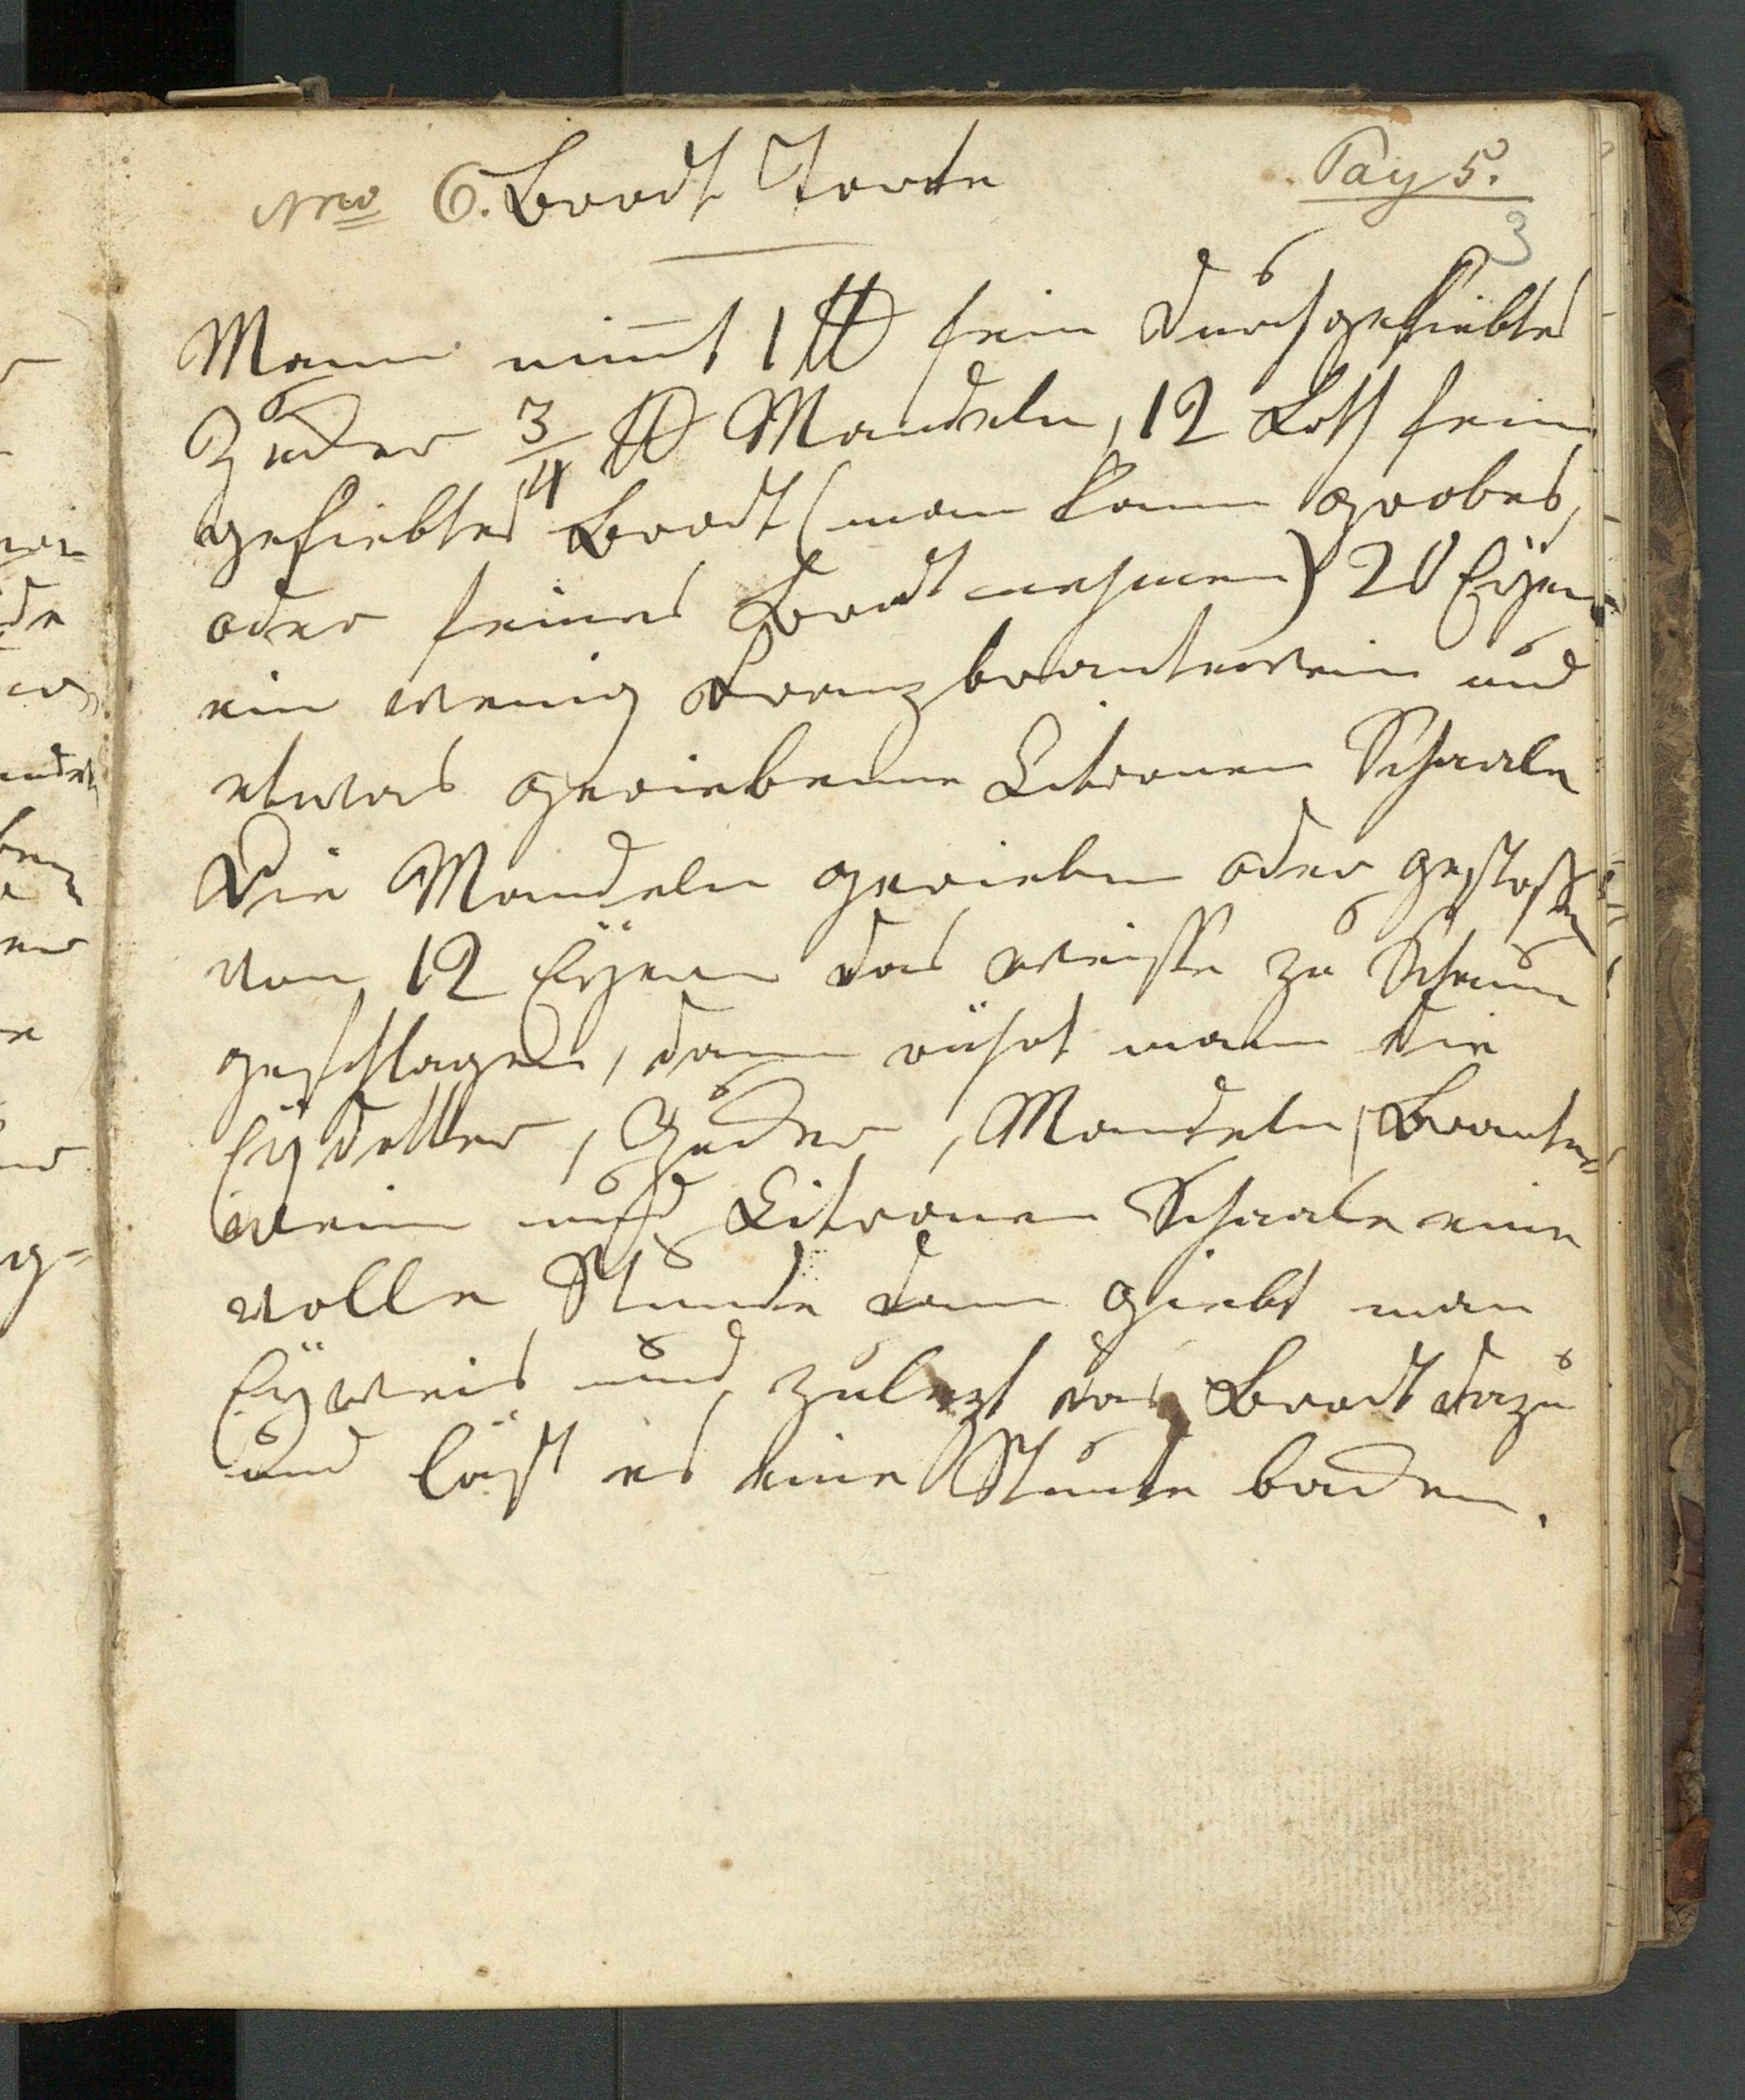 Nro 6. Brodt Torte
Pag 5.
3
Mann nim̅t 1 ℔ fein durchgesiebter
Zucker 3/4 ℔ Mandeln, 12 Loth fein
gesiebtes Brodt (man kann grobes,
oder feines Brodt nehmen) 20 Eÿer
ein wenig Franzbrantewein und
etwas geriebenne Citronen Schaale
Die Mandeln gerieben oder gestoßen
von 12 Eÿern das weisse zu Schaum
geschlagen, dann rührt mann die
Eÿdotter, Zucker, Mandeln, Brante
wein und Citronen Schaale eine
volle Stunde dann giebt man
Eÿweis und zulezt das Brodt dazu
und läst es eine Stunde backen.